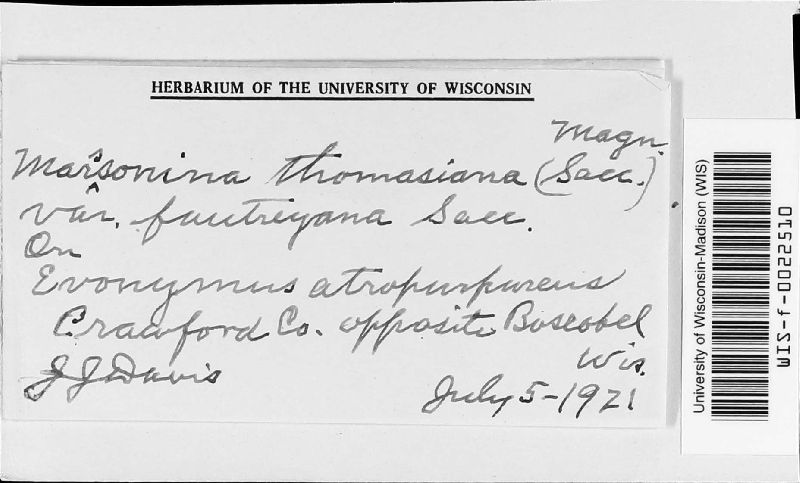 HERBARIUM OF THE UNIVERSITY OF WISCONSIN
Marssonina thomasiana (Sacc.) Magn.
var. fautreyana Sacc.
On
Evonymus atropurpureus
Crawford Co. opposite Boscobel
Wis.
J J Davis
July 5-1921
University of Wisconsin-Madison (WIS)
WIS-f-0022510